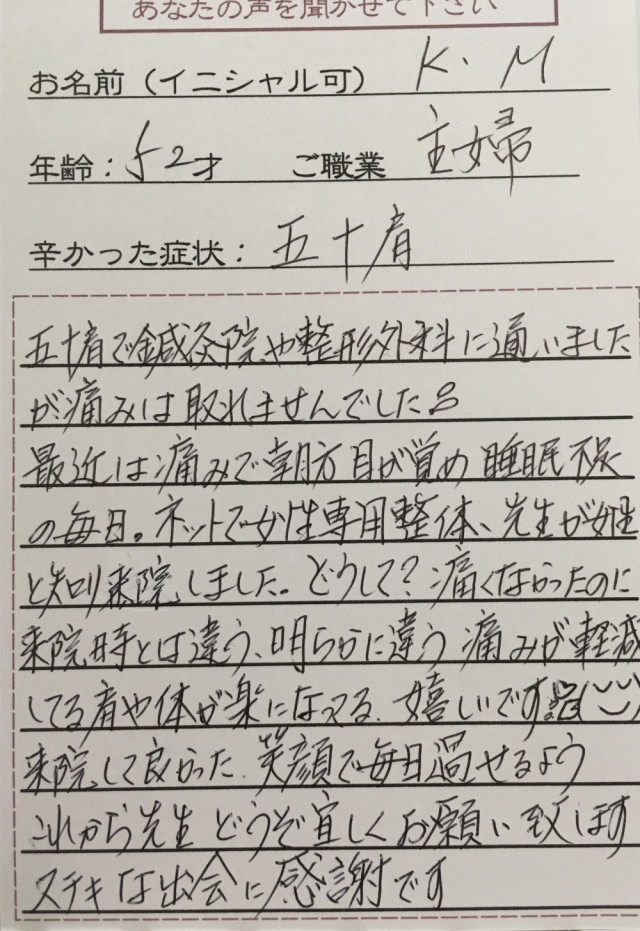 あなたの声を聞かせて下さい
お名前（イニシャル可） K・M
年齢：52才 ご職業 主婦
辛かった症状：五十肩
五十肩で鍼灸院や整形外科に通いました
が痛みは取れませんでした
最近は痛みで朝方目が覚め睡眠不足
の毎日。ネットで女性専用整体、先生が女性
と知り来院しました。どうして?痛くなかったのに
来院時とは違う、明らかに違う痛みが軽減
してる肩や体が楽になってる。嬉しいです
来院して良かった。笑顔で毎日過せるよう
これから先生どうぞ宜しくお願い致します
ステキな出会に感謝です